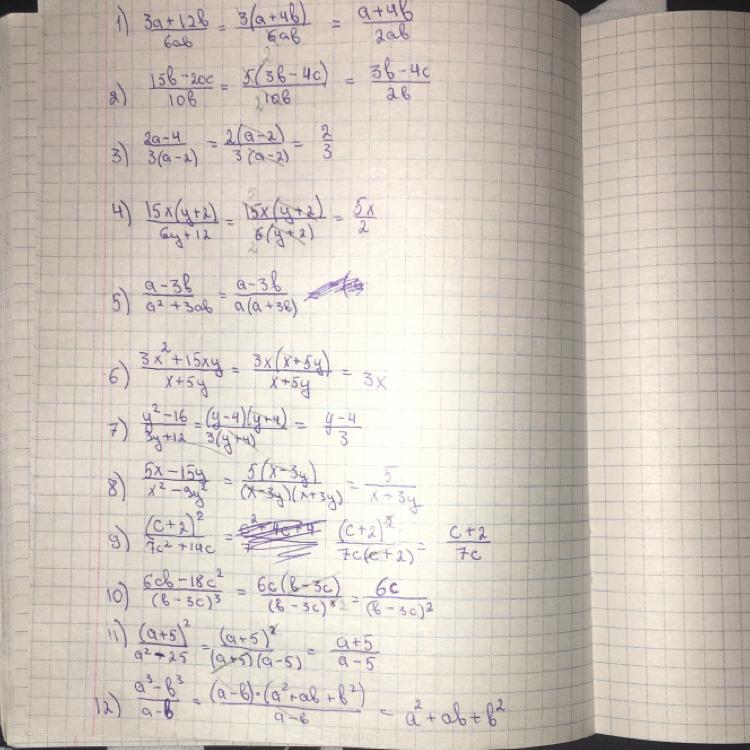 1) 3a+12b/6ab = 3(a+4b)/6ab = a+4b/2ab
2) 15b-20c/10b = 5(3b-4c)/10b = 3b-4c/2b
3) 2a-4/3(a-2) = 2(a-2)/3(a-2) = 2/3
4) 15x(y+2)/6y+12 = 15x(y+2)/6(y+2) = 5x/2
5) a-3b/a²+3ab = a-3b/a(a+3b)
6) 3x²+15xy/x+5y = 3x(x+5y)/x+5y = 3x
7) y²-16/3y+12 = (y-4)(y+4)/3(y+4) = y-4/3
8) 5x-15y/x²-9y² = 5(x-3y)/(x-3y)(x+3y) = 5/x+3y
9) (c+2)²/7c²+14c = (c+2)²/7c(c+2) = c+2/7c
10) 6cb-18c²/(b-3c)³ = 6c(b-3c)/(b-3c)³ = 6c/(b-3c)²
11) (a+5)²/a²-25 = (a+5)²/(a+5)(a-5) = a+5/a-5
12) a³-b³/a-b = (a-b)·(a²+ab+b²)/a-b = a²+ab+b²